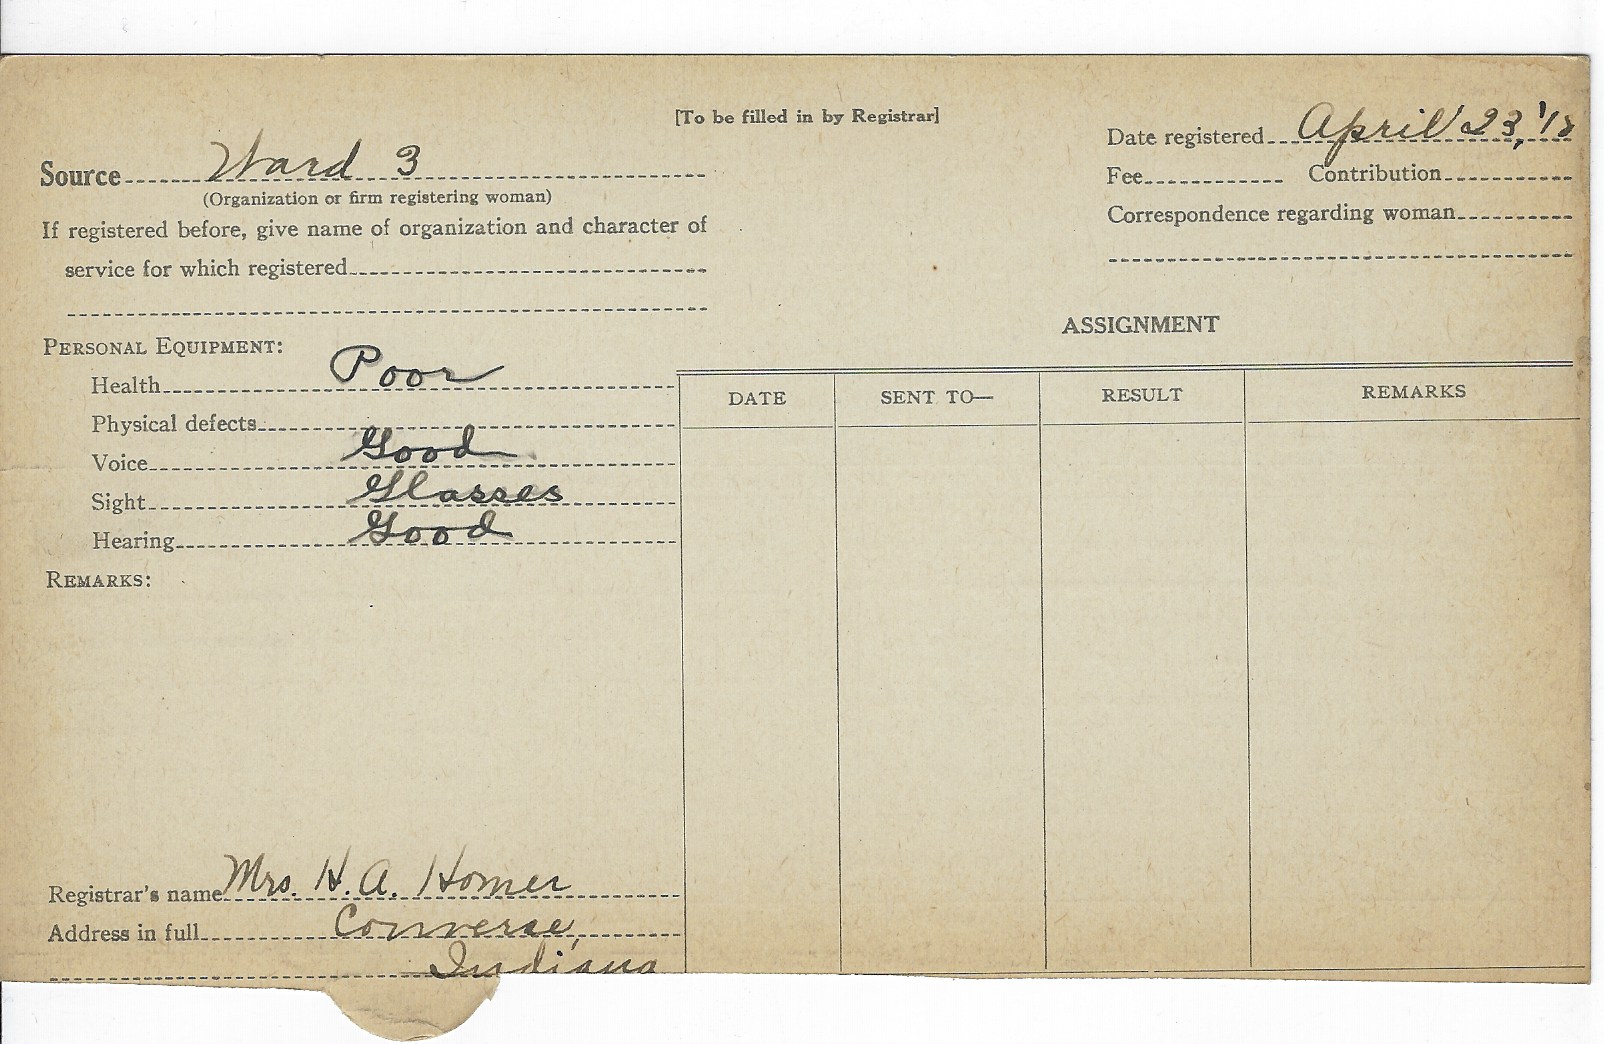 [To be filled in by Registrar]
Date registered April 23, '18
Source Ward 3
Fee Contribution
(Organization or firm registering woman)
Correspondence regarding woman
If registered before, give name of organization and character of
service for which registered
ASSIGNMENT
PERSONAL EQUIPMENT:
Health Poor
DATE SENT TO— RESULT REMARKS
Physical defects
Voice Good
Sight Glasses
Hearing Good
REMARKS:
Registrar's name Mrs. H. A. Homer
Address in full Converse,
Indiana